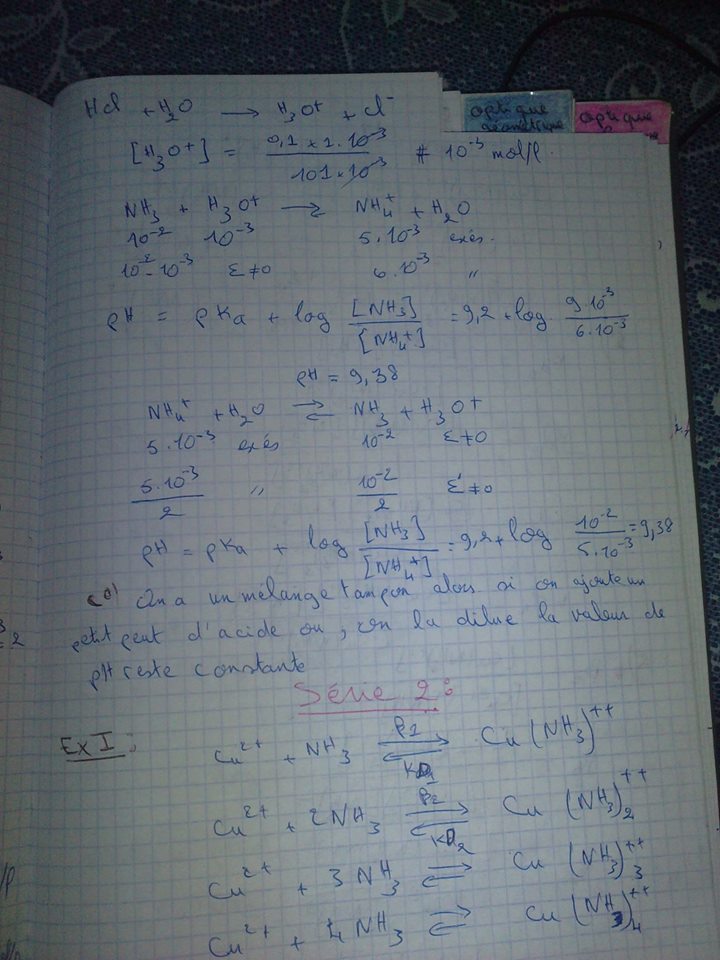 HCl + H2O → H3O+ + Cl-
optique géométrique
optique
[H3O+] = 0,1 × 1.10^-3 / 101 × 10^-3 # 10^-3 mol/l.
NH3 + H3O+ ⇌ NH4+ + H2O
10^-2 10^-3 5.10^-3 exés.
10^-2 - 10^-3 ε≠0 6.10^-3 "
pH = pKa + log [NH3]/[NH4+] = 9,2 + log 9.10^-3/6.10^-3
pH = 9,38
NH4+ + H2O ⇌ NH3 + H3O+
5.10^-3 exés 10^-2 ε≠0
5.10^-3/2 " 10^-2/2 ε'≠0
pH = pKa + log [NH3]/[NH4+] = 9,2 + log 10^-2/5.10^-3 = 9,38
On a un mélange tampon alors si on ajoute un
petit peut d'acide ou, on la dilue la valeur de
pH reste constante
Série 2:
Ex I: Cu2+ + NH3 β1 ⇌ KD1 Cu(NH3)++
Cu2+ + 2NH3 β2 ⇌ KD2 Cu(NH3)2++
Cu2+ + 3NH3 ⇌ Cu(NH3)3++
Cu2+ + 4NH3 ⇌ Cu(NH3)4++